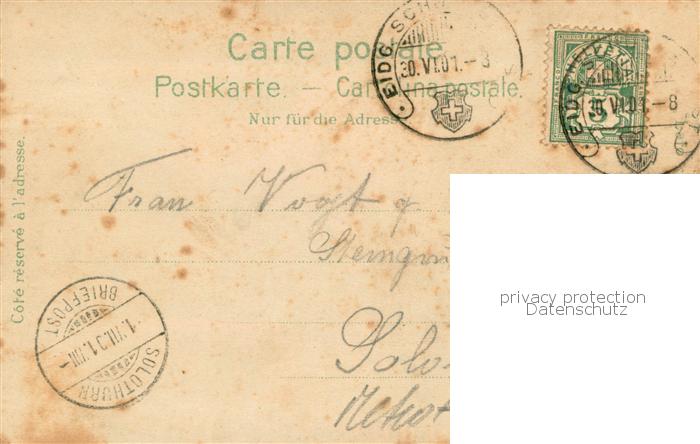 Carte postale.
Postkarte. — Cartolina postale.
Nur für die Adresse
Côté réservé à l'adresse.
EIDG. SCH
30.VI.01.–8
EIDG.
30.VI.01.–8
5
Frau Vogt
Solo
SOLOTHURN
1.VII.01.VIII
BRIEFPOST
privacy protection
Datenschutz